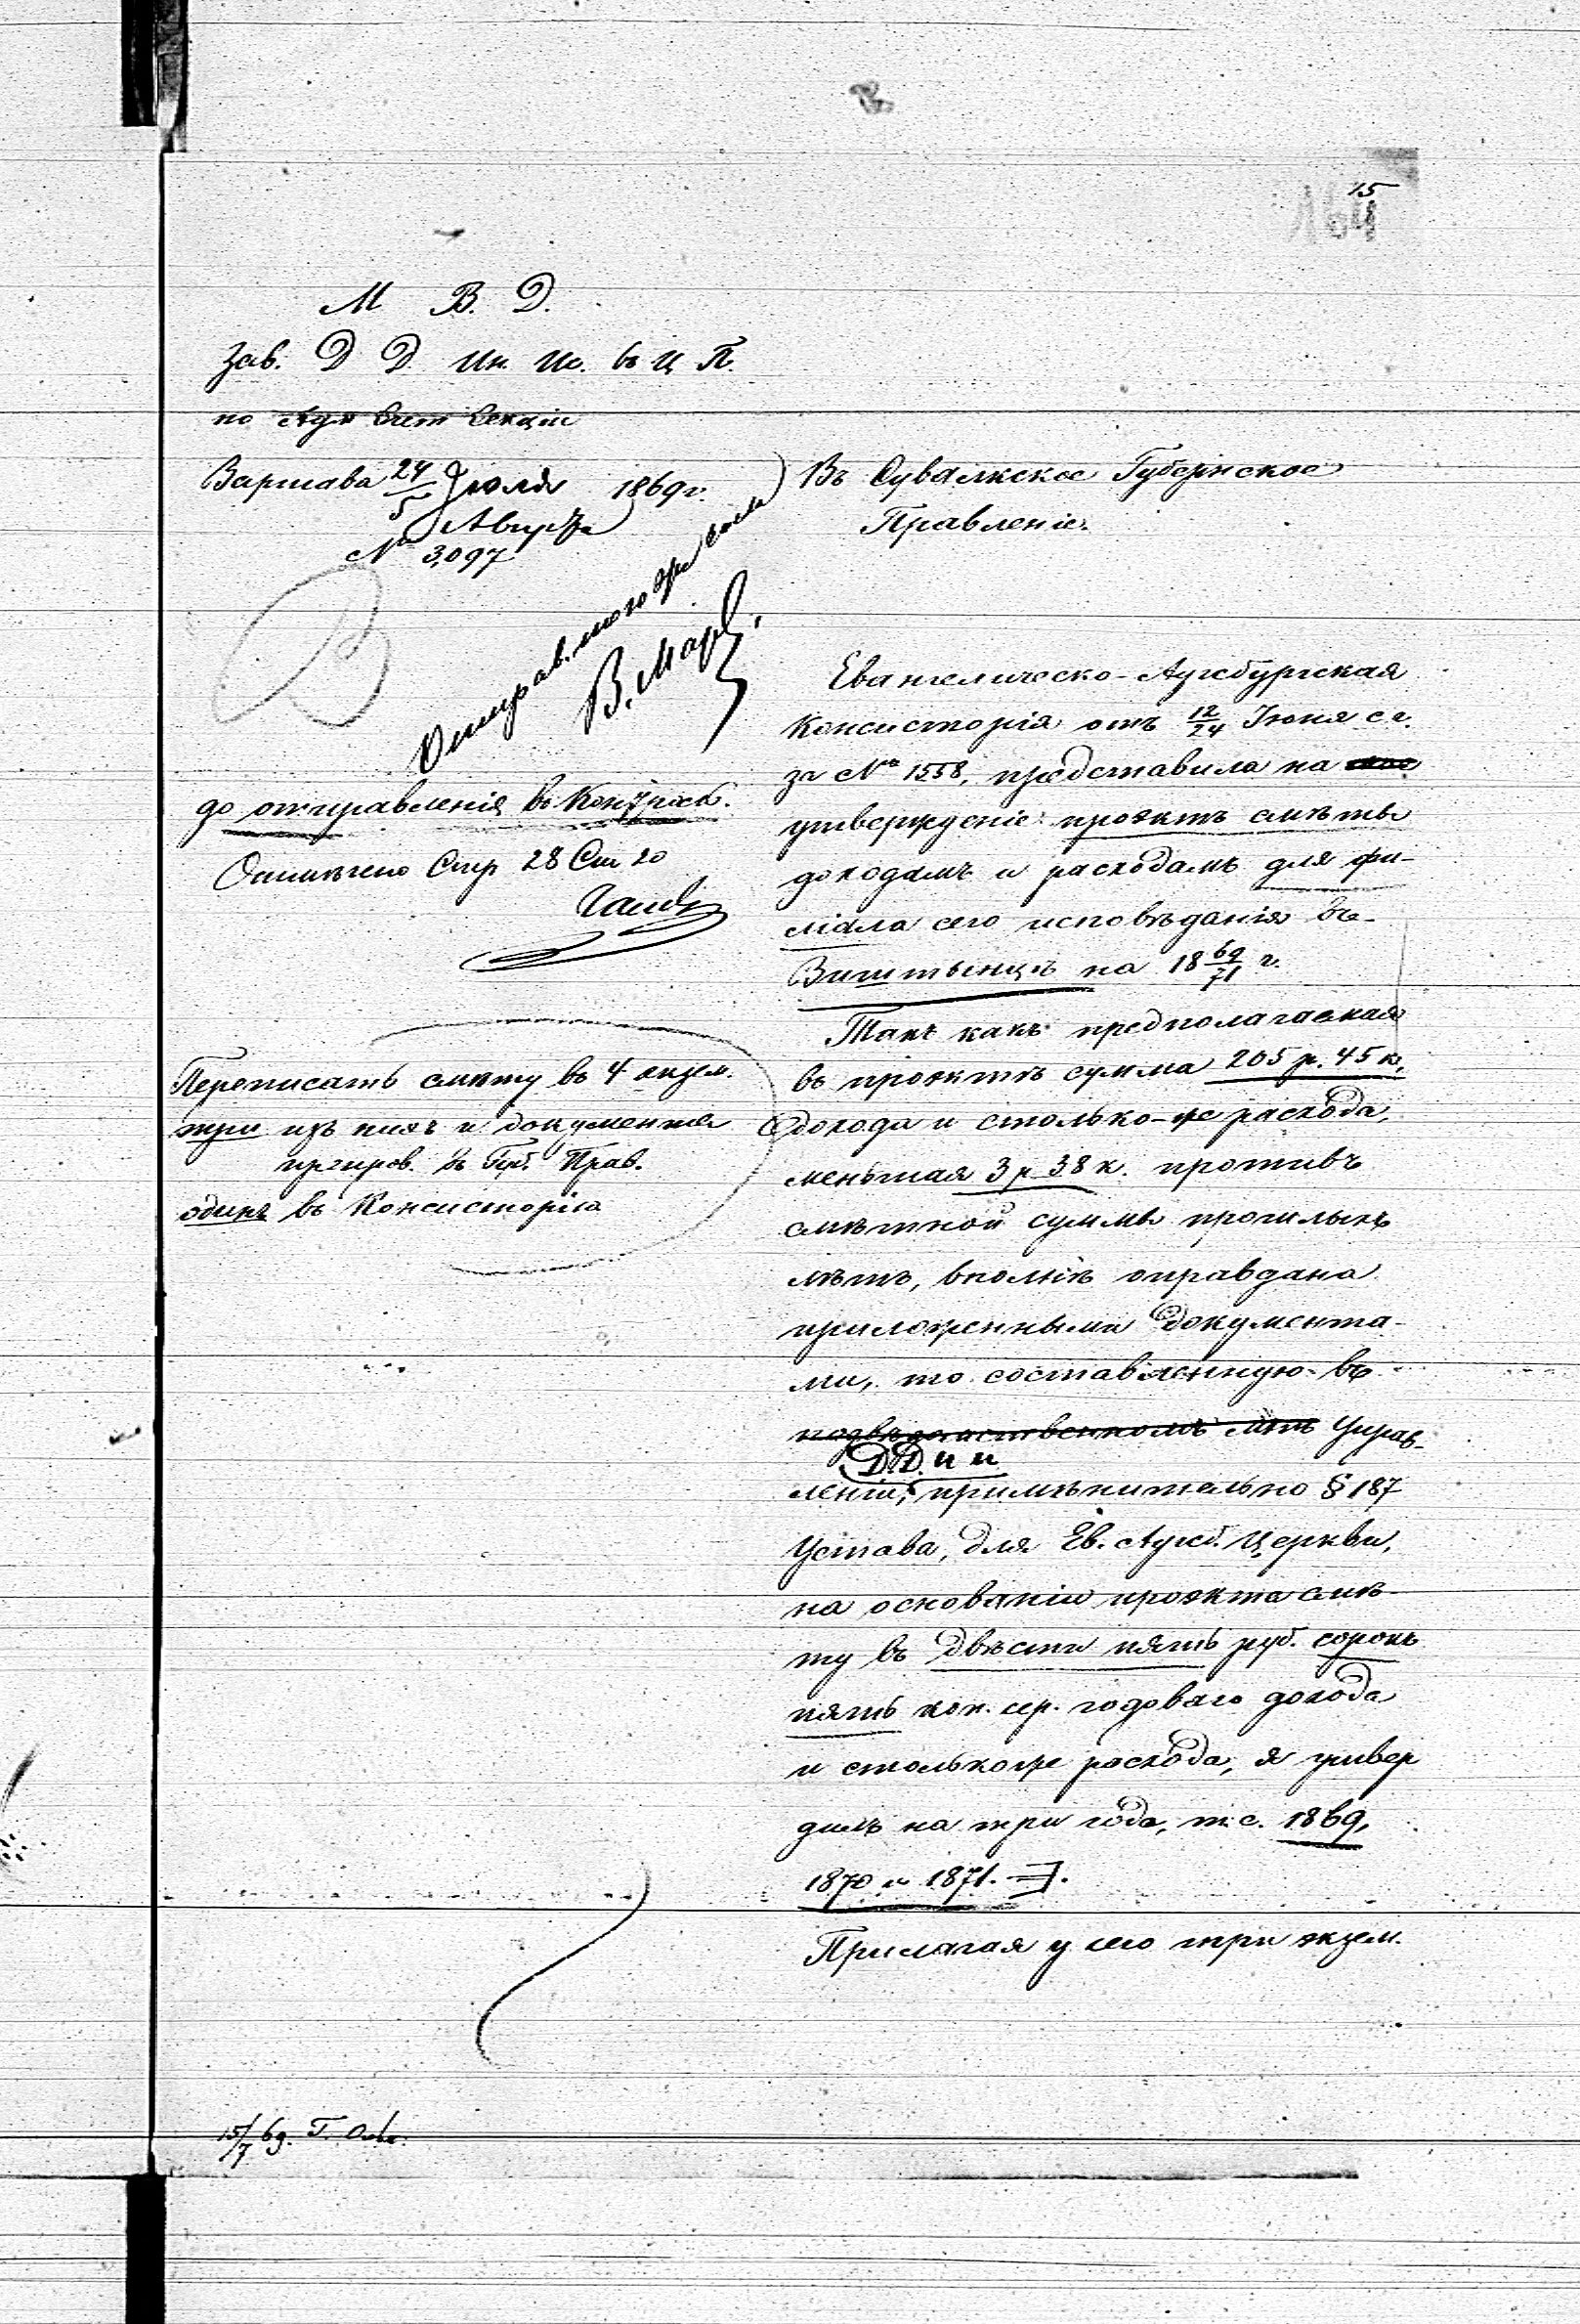 15
164
М В. Д.
Зав. Д Д Ин. Ис. въ Ц П.
по Адм Счет Секціи
Варшава 24/5 Іюля/Августа 1869 г.
№ 3,097
В. Мар
до отправленія въ Контрол.
Отмѣчено Стр 28 Ст 20
Переписать смѣту въ 4 экзем.
три изъ нихъ и документы
въ Губ. Прав.
одинъ въ Консисторію
15/7 69. Г.
Въ Сувалкское Губернское
Правленіе.
Евангелическо-Аугсбургская
Консисторія отъ 12/24 Іюня с. г.
за № 1558, представила на
утвержденіе проэктъ смѣты
доходамъ и расходамъ для фи-
ліала сего исповѣданія въ
Виштынцѣ на 18 69/71 г.
Такъ какъ предполагаемая
въ проэктѣ сумма 205 р. 45 к.
дохода и столько-же расхода,
меньшая 3 р 38 к. противъ
смѣтной суммы прошлыхъ
лѣтъ, вполнѣ оправдана
приложенными документа-
ми, то составленную въ
подвѣдомственномъ мнѣ Управ-
Д. Д. И И
леніи, примѣнительно § 187
Устава, для Ев. Аугсб. Церкви,
на основаніи проэкта смѣ-
ту въ двѣсти пять руб. сорокъ
пять коп. сер. годоваго дохода
и столькоже расхода, я утвер
дилъ на три года, т. е. 1869,
1870 и 1871.
Прилагая у сего три экзем.